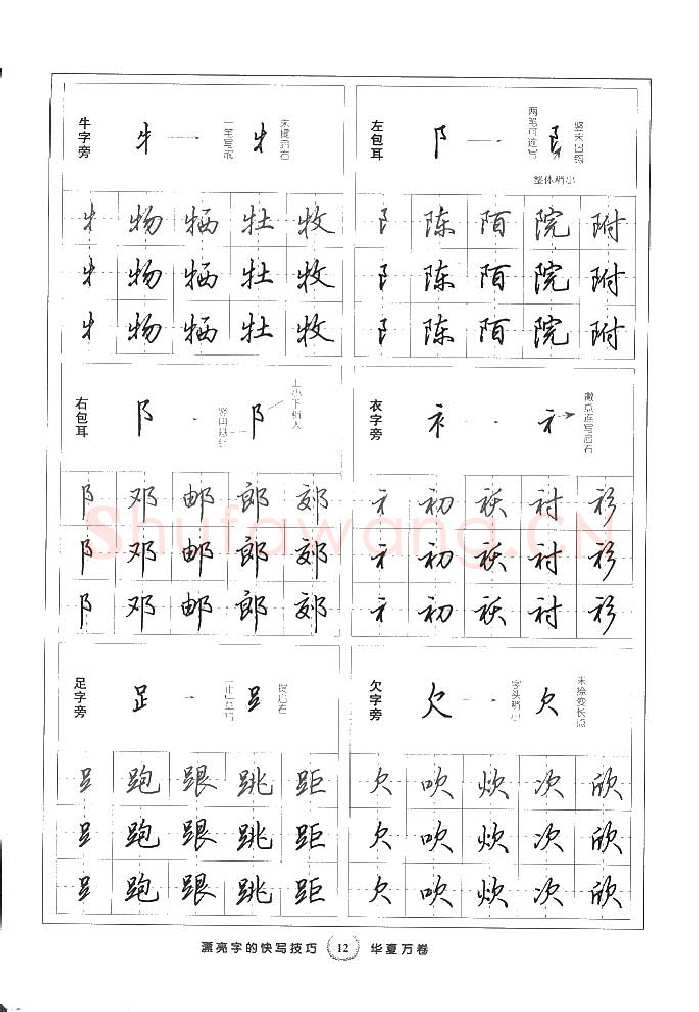 牛字旁
一笔写成
末提启右
牜 物 牺 牡 牧
牜 物 牺 牡 牧
牜 物 牺 牡 牧
左包耳
两笔可连写
整体稍小
阝 陈 陌 院 附
阝 陈 陌 院 附
阝 陈 陌 院 附
右包耳
上小下稍大
阝 邓 邮 郎 郊
阝 邓 邮 郎 郊
阝 邓 邮 郎 郊
衣字旁
撇点连写启右
衤 初 袄 衬 衫
衤 初 袄 衬 衫
衤 初 袄 衬 衫
足字旁
提启右
𧾷 跑 跟 跳 距
𧾷 跑 跟 跳 距
𧾷 跑 跟 跳 距
欠字旁
字头稍小
末捺变长点
欠 吹 炊 次 欣
欠 吹 炊 次 欣
欠 吹 炊 次 欣
Shufawang.CN
漂亮字的快写技巧 12 华夏万卷